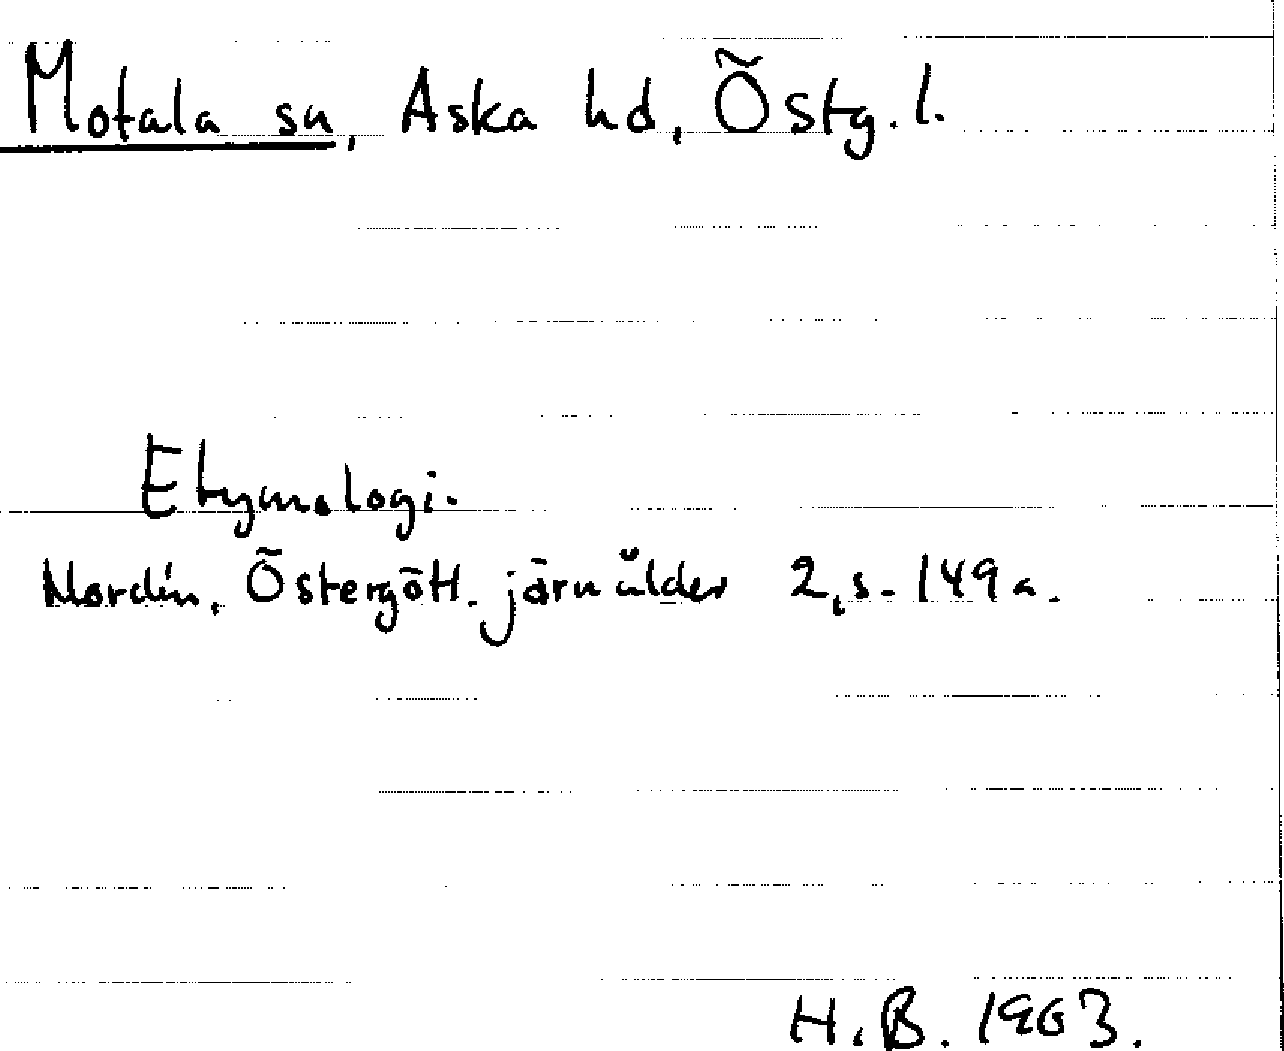 Motala sn, Aska hd, Östg. l.
Etymologi.
Nordén, Östergötl. järnålder 2, s. 149 a.
H. B. 1963.